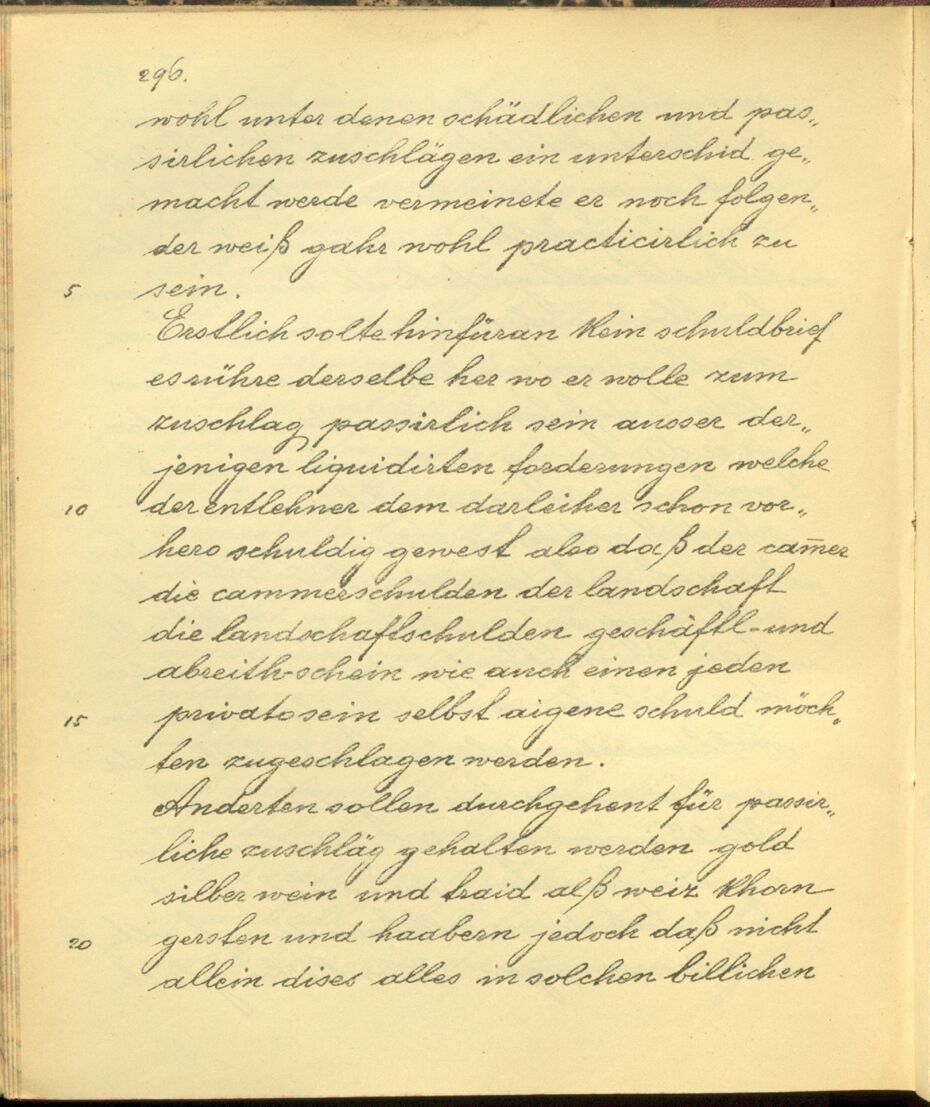 296.
wohl unter denen schädlichen und pas„
sirlichen zuschlägen ein unterschid ge„
macht werde vermeinete er noch folgen„
der weiß gahr wohl practicirlich zu
5 sein.
Erstlich solte hinfüran kein schuldbrief
es rühre derselbe her wo er wolle zum
zuschlag passirlich sein ausser der„
jenigen liquidirten forderungen welche
10 der entlehner dem darleiher schon vor„
hero schuldig gewest also daß der cam̅er
die cammerschulden der landschaft
die landschaftschulden geschäftl- und
abreith-schein wie auch einen jeden
15 privato sein selbst aigene schuld möch„
ten zugeschlagen werden.
Anderten sollen durchgehent für passir„
liche zuschläg gehalten werden gold
silber wein und traid alß weiz khorn
20 gersten und haabern jedoch daß nicht
allein dises alles in solchen billichen